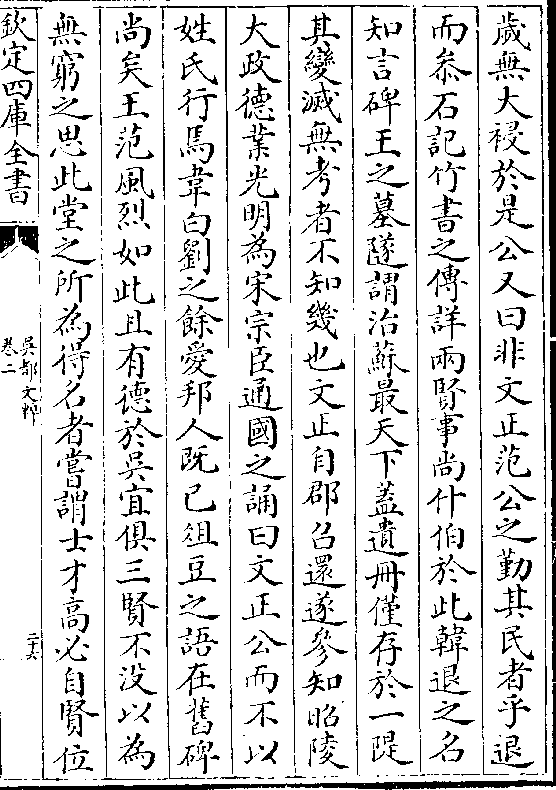 歲無大祲於是公又曰非文正范公之勤其民者乎退
而叅石記竹書之傳詳兩賢事尚什伯於此韓退之名
知言碑王之墓隧謂治蘇最天下蓋遺冊僅存於一隄
其變滅無考者不知幾也文正自郡召還遂參知昭陵
大政德業光明為宋宗臣通國之誦曰文正公而不以
姓氏行焉韋白劉之餘愛邦人既已俎豆之語在舊碑
尚矣王范風烈如此且有德於吳宜俱三賢不没以為
無窮之思此堂之所為得名者嘗謂士才高必自賢位
欽定四庫全書
吳都文粹
卷二
二十六